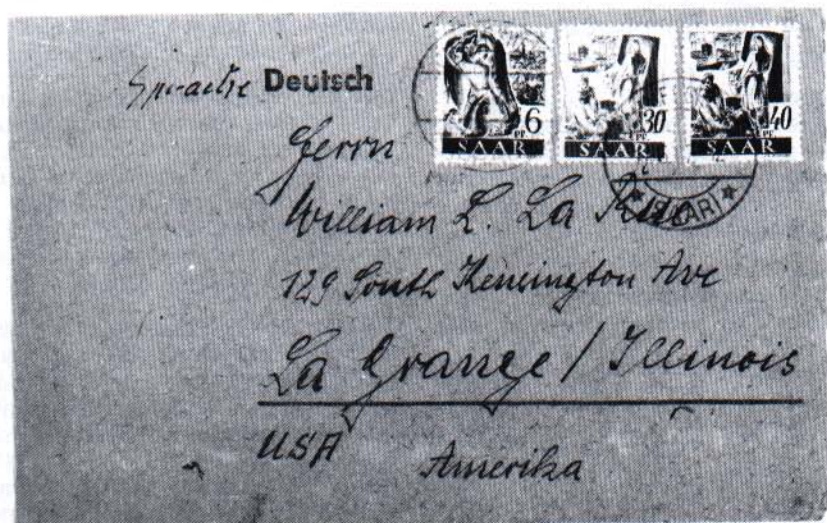 Sprache Deutsch
6 30 40
PF PF PF
SAAR SAAR SAAR
(SAAR)
Herrn
William L. La
129 South Kensington Ave
La Grange / Illinois
USA
Amerika